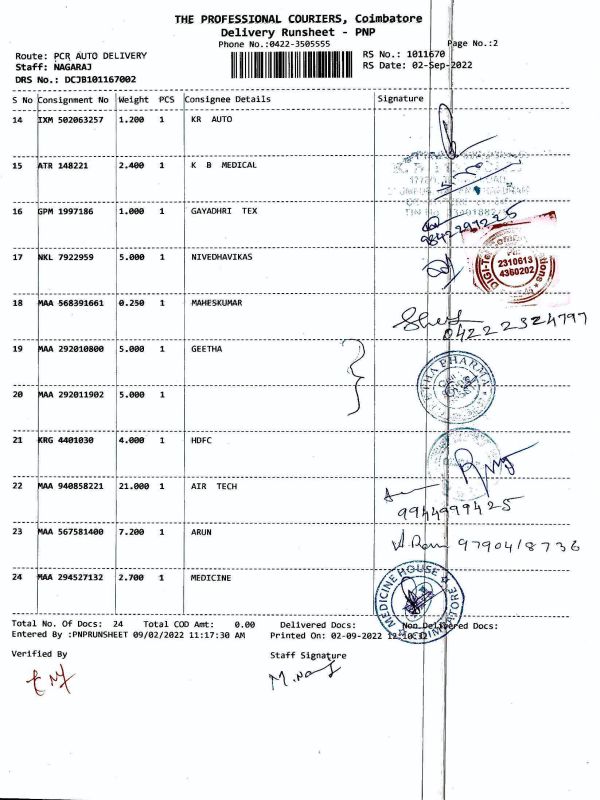 THE PROFESSIONAL COURIERS, Coimbatore
Delivery Runsheet - PNP
Phone No.:0422-3505555
Page No.:2
Route: PCR AUTO DELIVERY
RS No.: 1011670
Staff: NAGARAJ
RS Date: 02-Sep-2022
DRS No.: DCJB101167002
S No Consignment No Weight PCS Consignee Details Signature
14 IXM 502063257 1.200 1 KR AUTO
15 ATR 148221 2.400 1 K B MEDICAL
16 GPM 1997186 1.000 1 GAYADHRI TEX
9842297225
17 NKL 7922959 5.000 1 NIVEDHAVIKAS
2310613
4360202
18 MAA 568391661 0.250 1 MAHESKUMAR
04222324797
19 MAA 292010800 5.000 1 GEETHA
20 MAA 292011902 5.000 1
21 KRG 4401030 4.000 1 HDFC
22 MAA 940858221 21.000 1 AIR TECH
9944999425
23 MAA 567581400 7.200 1 ARUN
9790418736
24 MAA 294527132 2.700 1 MEDICINE
MEDICINE HOUSE
COIMBATORE
Total No. Of Docs: 24 Total COD Amt: 0.00 Delivered Docs: Non Delivered Docs:
Entered By :PNPRUNSHEET 09/02/2022 11:17:30 AM Printed On: 02-09-2022
Verified By Staff Signature